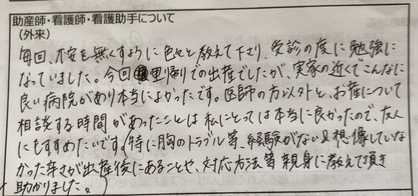 助産師・看護師・看護助手について
(外来)
毎回、不安を無くすように色々と教えて下さり、受診の度に勉強に
なっていました。今回里帰りでの出産でしたが、実家の近くでこんなに
良い病院があり本当によかったです。医師の方以外と、お産について
相談する時間があったことは私にとっては本当に良かったので、友人
にもすすめたいです(特に胸のトラブル等、経験がないと想像していな
かった辛さが出産後にあることや、対応方法等親身に教えて頂き
助かりました。)